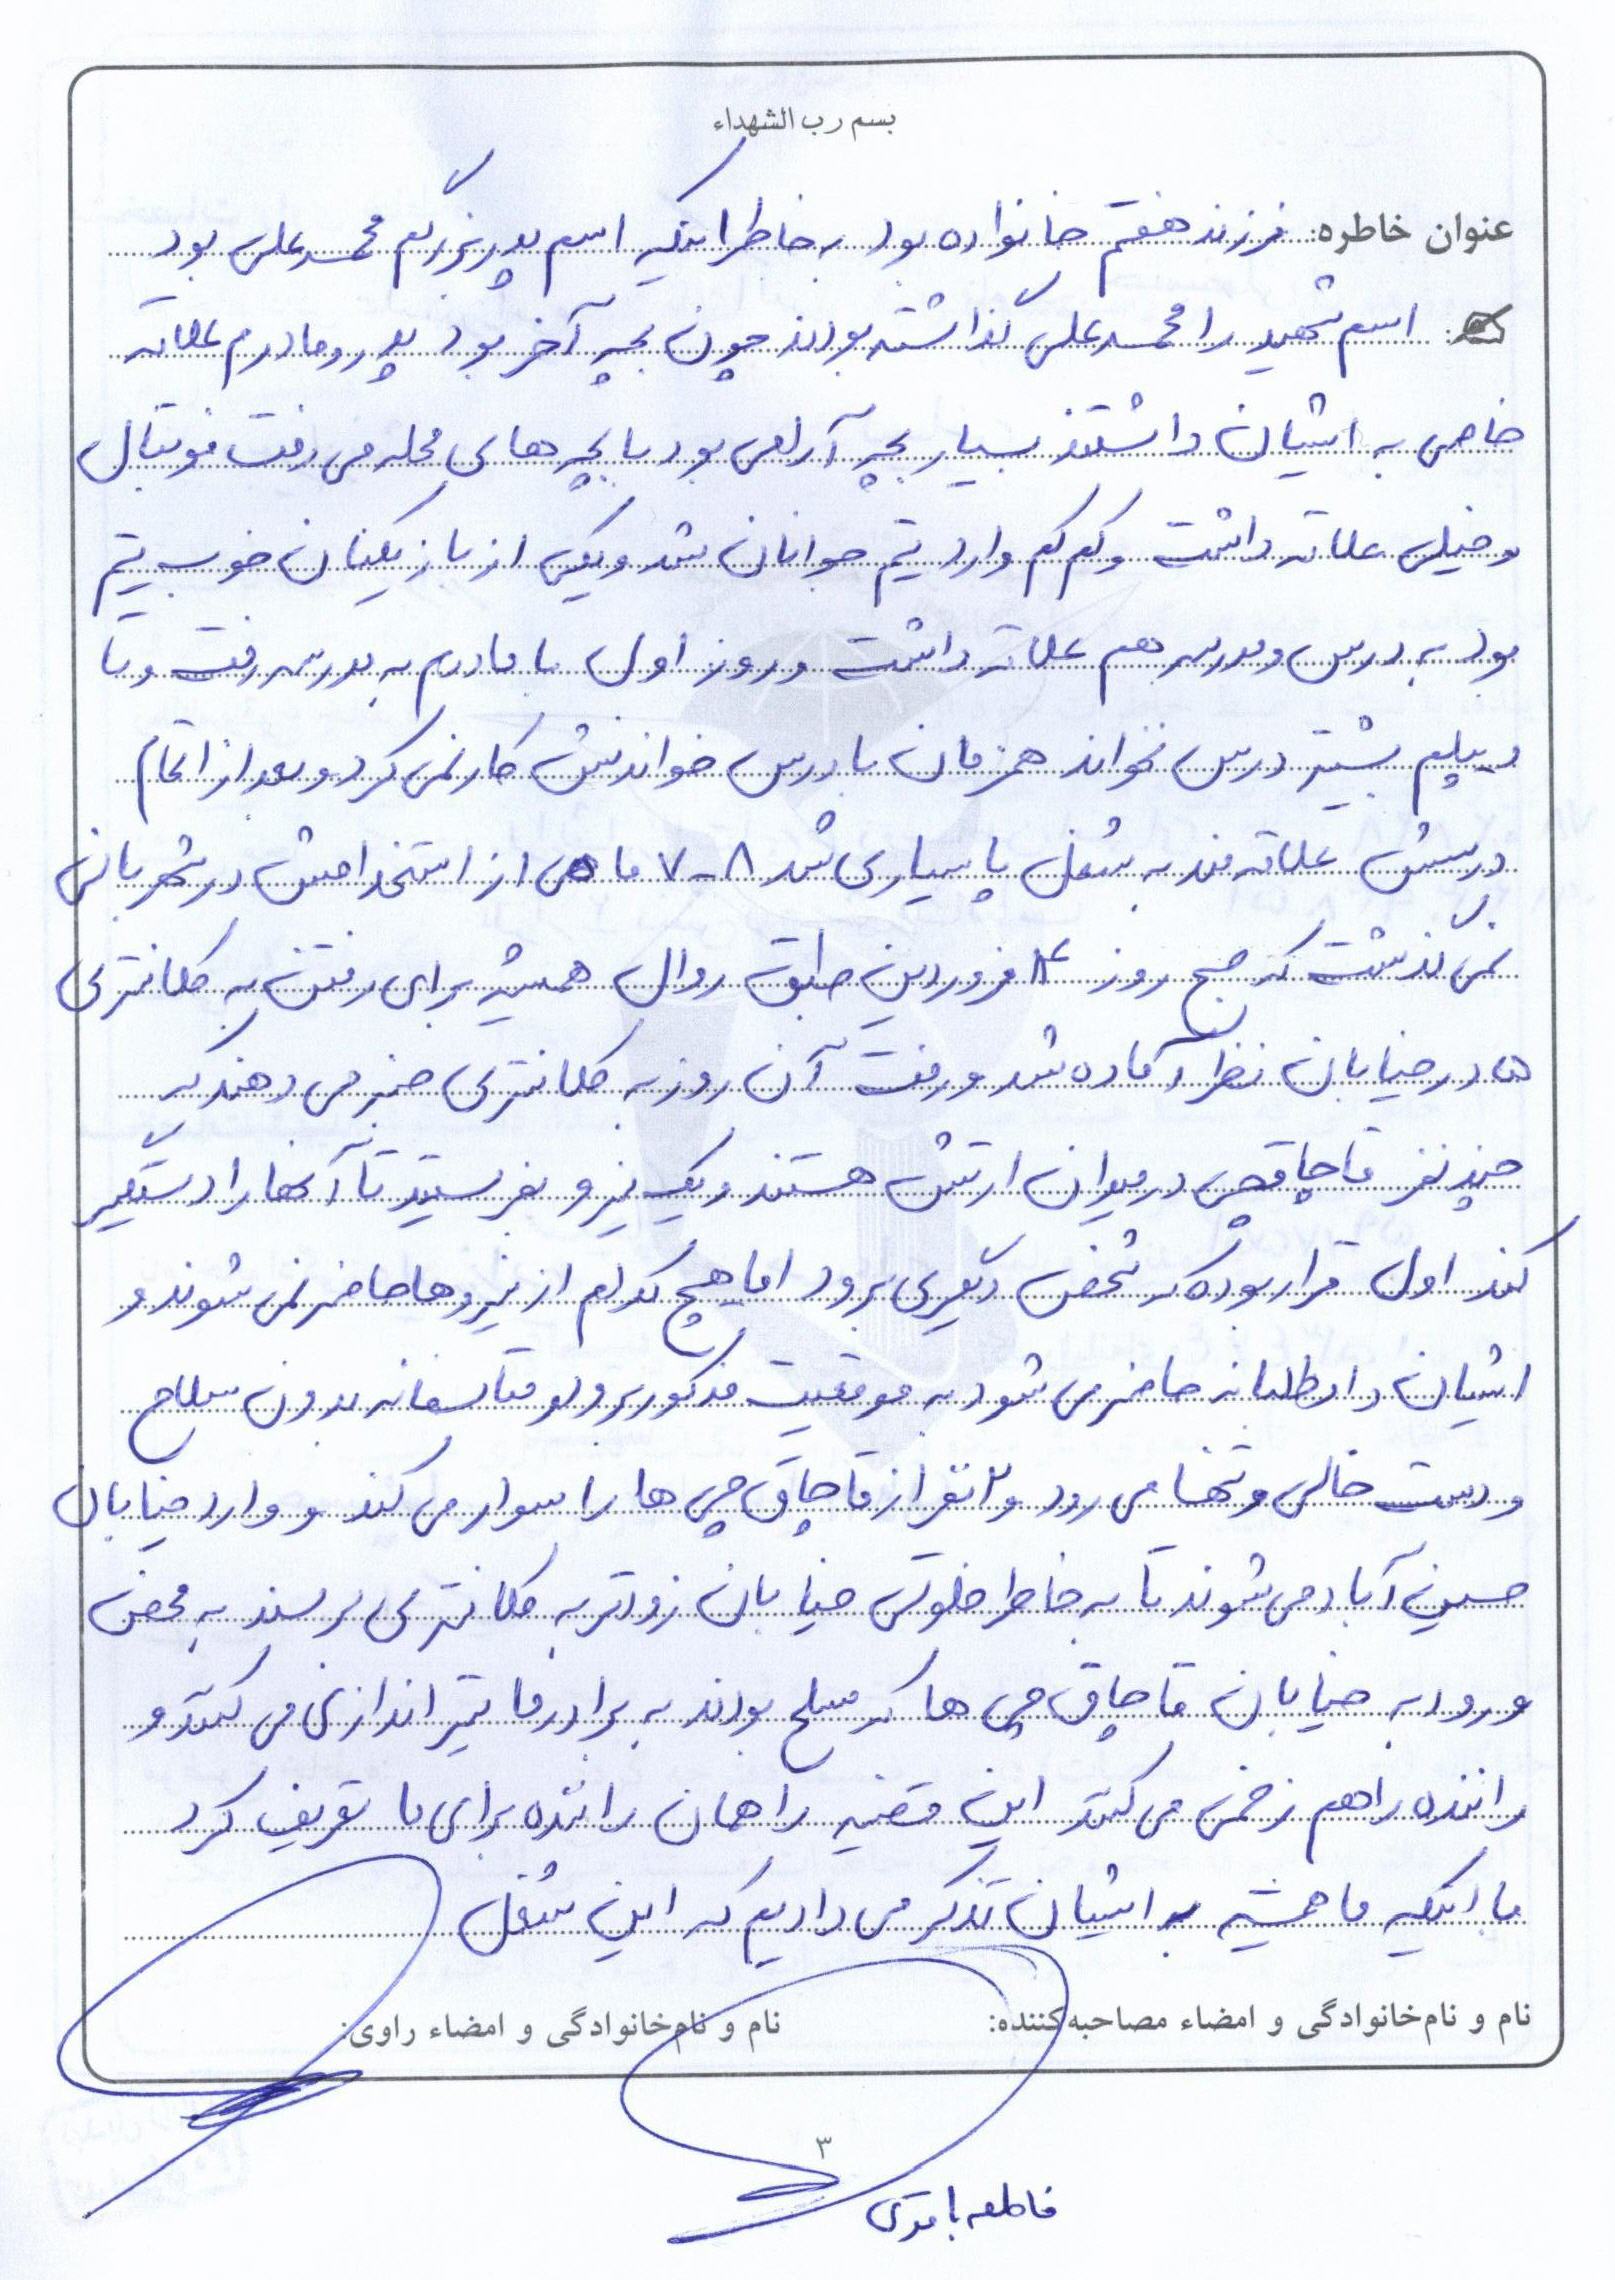 بسم رب الشهداء
عنوان خاطره: فرزند هفتم خانواده بود به خاطر اینکه اسم پدربزرگم محمدعلی بود
اسم شهید را محمدعلی گذاشته بودند چون بچه آخر بود پدر و مادرم علاقه
خاصی به ایشان داشتند بسیار بچه آرامی بود با بچه های محله می رفت فوتبال
و خیلی علاقه داشت و کم کم وارد تیم جوانان شد و یکی از بازیکنان خوب تیم
بود به درس و مدرسه هم علاقه داشت و روز اول با مادرم به مدرسه رفت و تا
دیپلم بیشتر درس نخواند همزمان با درس خواندنش کار نمی کرد و بعد از اتمام
درسش علاقه مند به شغل پاسیاری شد ۸-۷ ماهی از استخدامش در شهربانی
نمی گذشت که صبح روز فروردین طبق روال همیشه برای رفتن به کلانتری
۵ در خیابان نظر آماده شد و رفت آن روز به کلانتری خبر می دهند که
چند نفر قاچاقچی در میدان ارتش هستند و یک نیرو بفرستید تا آنها را دستگیر
کند اول قرار بوده که شخص دیگری برود اما هیچ کدام از نیروها حاضر نمی شوند و
ایشان داوطلبانه حاضر می شود به موقعیت مذکور برود و متاسفانه بدون سلاح
و دست خالی و تنها می رود و ۲ نفر از قاچاق چی ها را سوار می کند و وارد خیابان
حسین آباد می شوند تا به خاطر خلوتی خیابان زودتر به کلانتری برسند به محض
ورود به خیابان قاچاق چی ها که مسلح بودند به برادر ما تیراندازی می کنند و
راننده را هم زخمی می کنند این قضیه را همان راننده برای ما تعریف کرد
با اینکه ما همیشه به ایشان تذکر می دادیم که این شغل
نام و نام‌خانوادگی و امضاء مصاحبه‌کننده: نام و نام‌خانوادگی و امضاء راوی:
۳
فاطمه